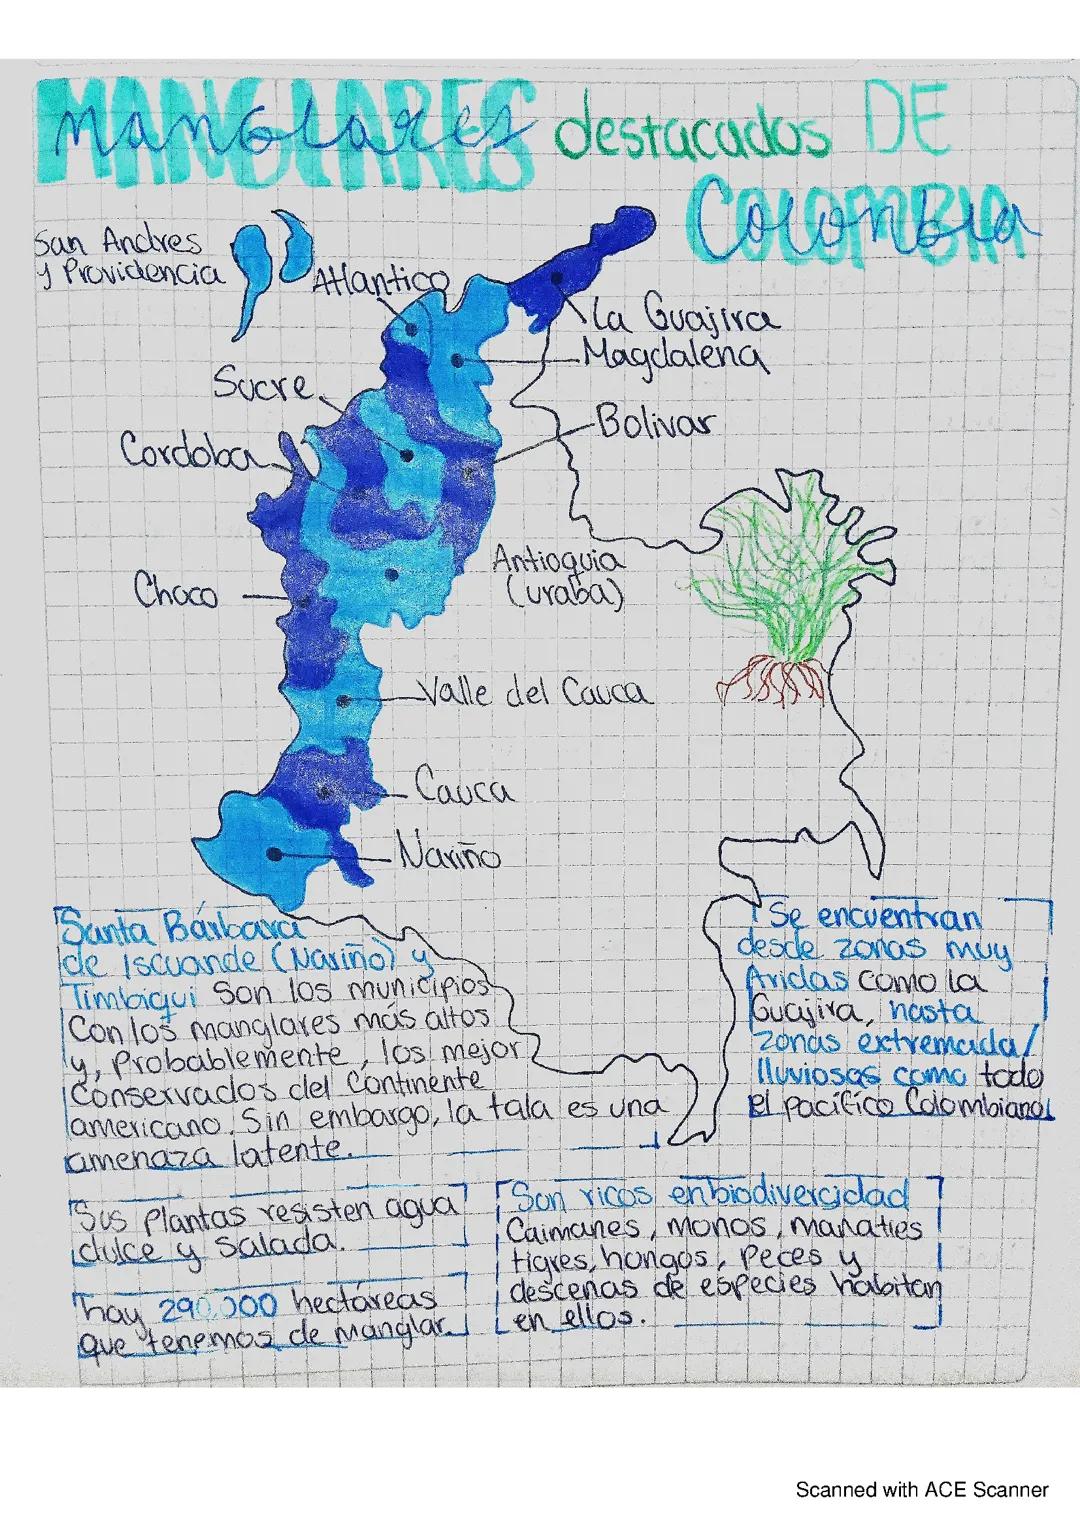 MANGLARES destacados DE
COLOMBIA
San Andres
y Providencia
Atlantico
La Guajira
Magdalena
Sucre
Bolivar
Cordoba
Antioquia
(uraba)
Choco
Valle del Cauca
Cauca
Nariño
Santa Bárbara
de Iscuande (Nariño) y
Timbiqui Son los municipios
Con los manglares más altos
y, Probablemente, los mejor
Conservados del Continente
americano. Sin embargo, la tala es una
amenaza latente.
Se encuentran
desde zonas muy
Aridas como la
Guajira, hasta
zonas extremada/
lluviosas como todo
el pacífico Colombiano
Sus plantas resisten agua
dulce y salada.
hay 290.000 hectáreas
que tenemos de manglar.
Son ricos en biodivercidad
Caimanes, monos, manaties
tigres, hongos, Peces y
descenas de especies habitan
en ellos.
Scanned with ACE Scanner